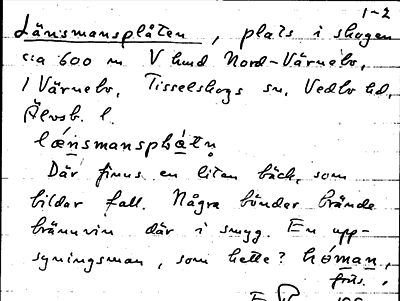 1-2
Länsmansplåten, plats i skogen
c:a 600 m V lund Nord-Värnebo,
/ Värnebo, Tisselskogs sn, Vedbo hd,
Älvsb. l.
Där finns en liten bäck, som
bildar fall. Några bönder brände
brännvin där i smyg. En upp-
syningsman, som hette ? hóman,